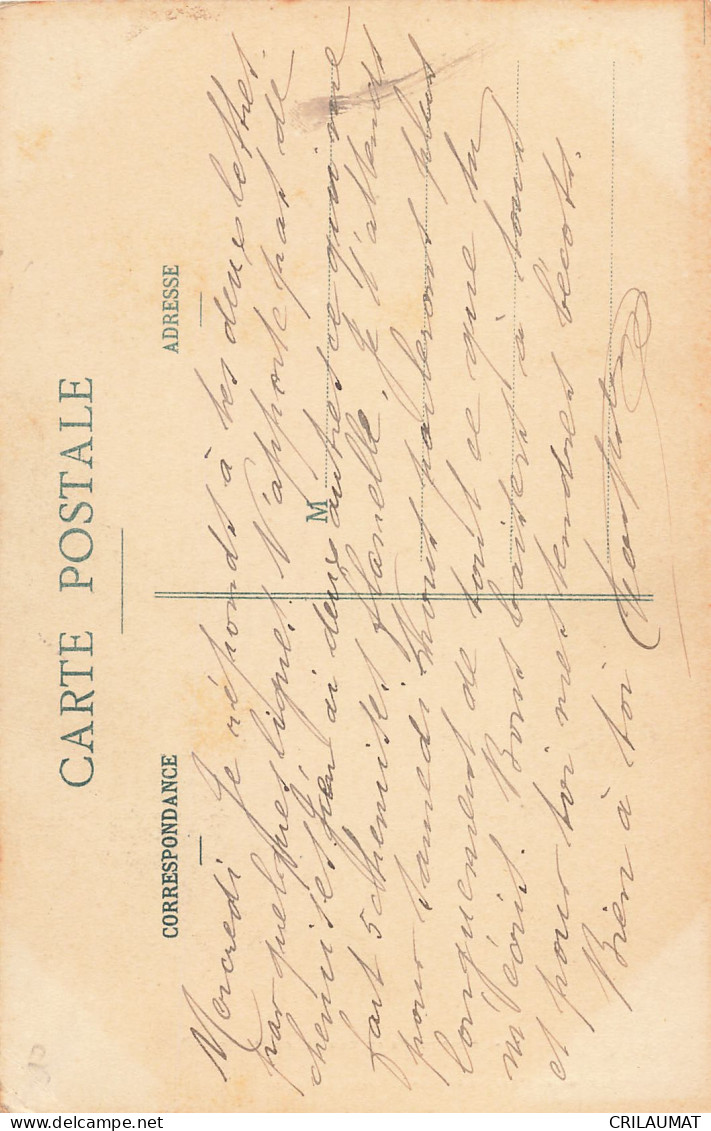 CARTE POSTALE
CORRESPONDANCE
ADRESSE
M
Mercredi Je réponds à tes deux lettres
par quelques lignes. N'apporte pas de
chemises j'en ai deux autres ce qui me
fait 5 chemises flanelle, je t'attends
pour samedi nous parlerons plus
longuement de tout ce que tu
m'écris. Bons baisers à tous
et pour toi mes tendres bécots.
Bien à toi
CRILAUMAT